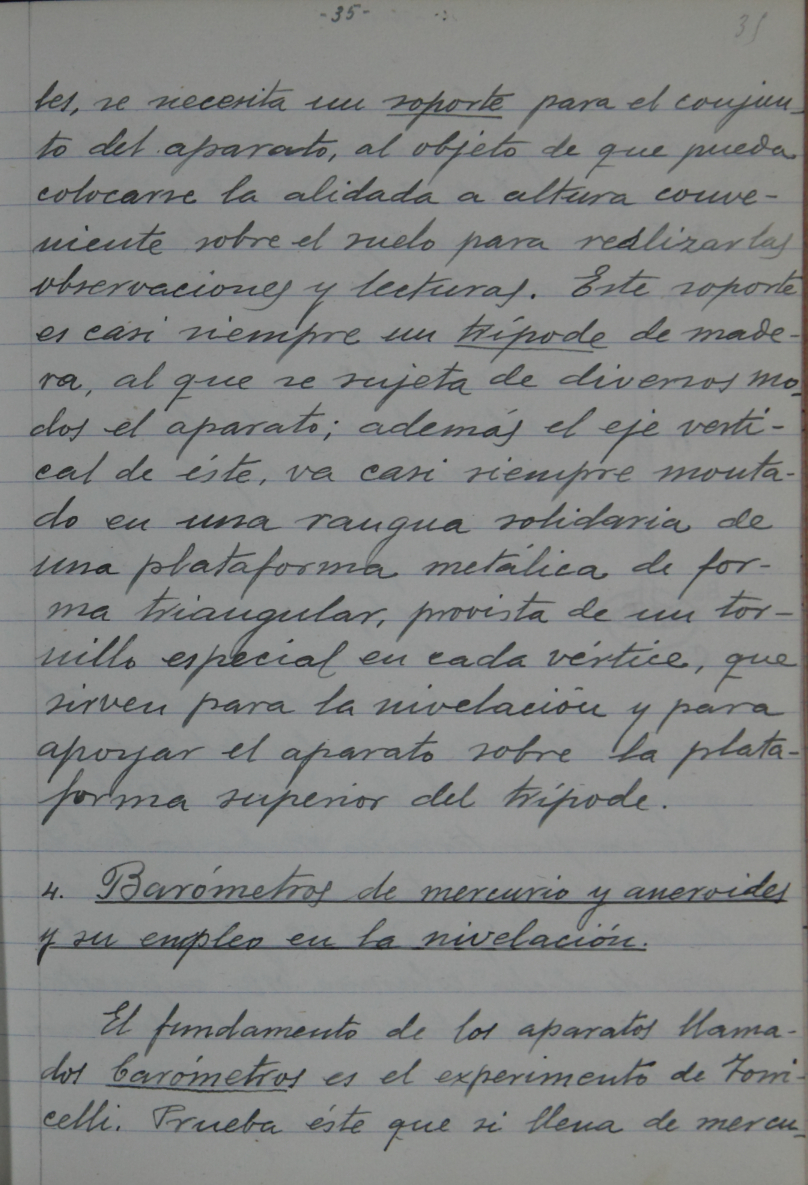 -35-
35
les, se necesita un soporte para el conjun-
to del aparato, al objeto de que pueda
colocarse la alidada a altura conve-
niente sobre el suelo para realizar las
observaciones y lecturas. Este soporte
es casi siempre un trípode de made-
ra, al que se sujeta de diversos mo-
dos el aparato; además el eje verti-
cal de éste, va casi siempre monta-
do en una rangua solidaria de
una plataforma metálica de for-
ma triangular, provista de un tor-
nillo especial en cada vértice, que
sirven para la nivelación y para
apoyar el aparato sobre la plata-
forma superior del trípode.
4. Barómetros de mercurio y aneroides
y su empleo en la nivelación.
El fundamento de los aparatos llama-
dos barómetros es el experimento de Torri-
celli. Prueba éste que si llena de mercu-